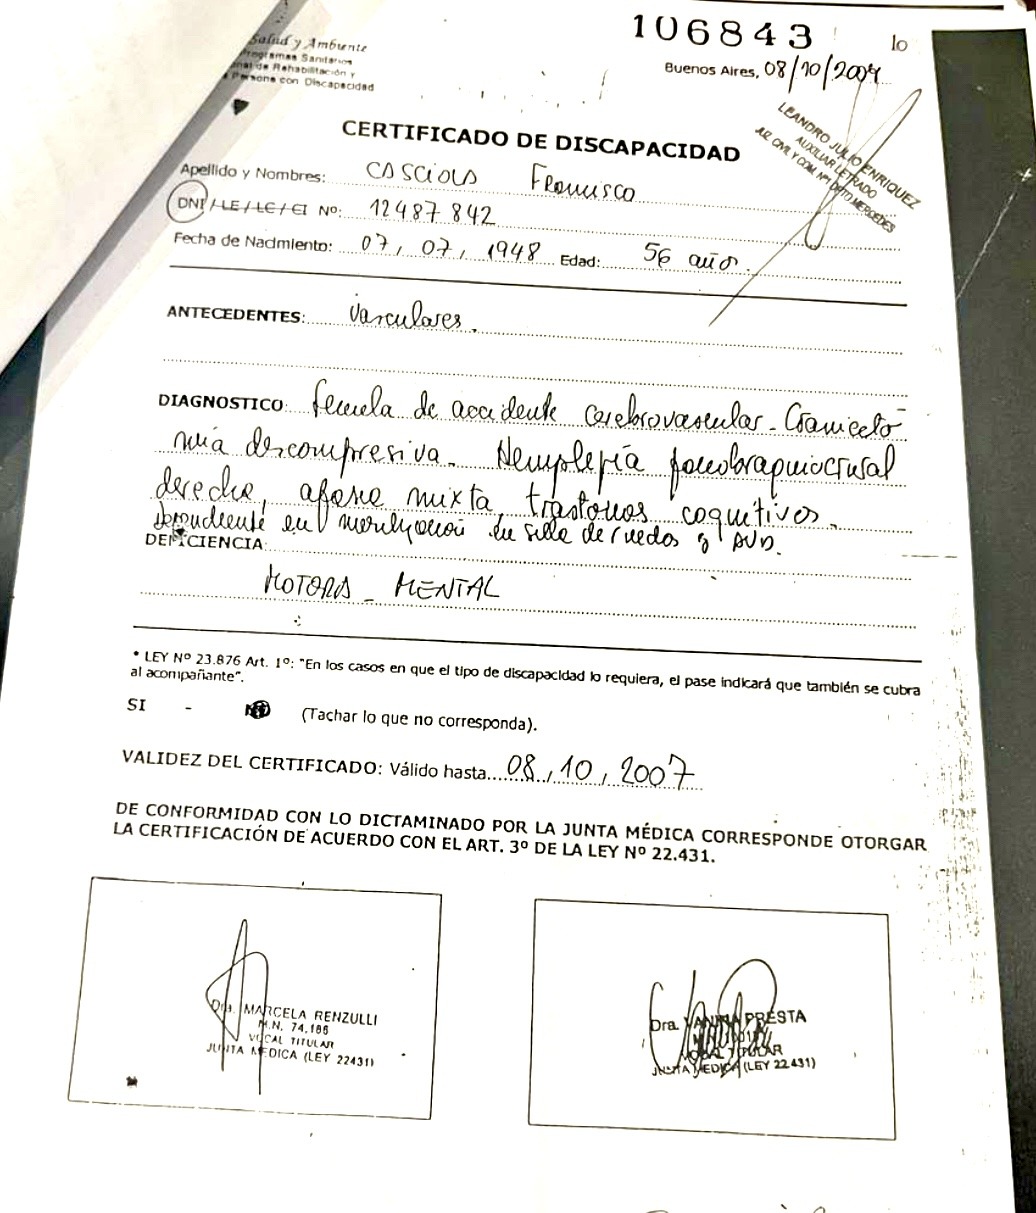 106843
10
Salud y Ambiente
Programas Sanitarios
de Rehabilitación y
Persona con Discapacidad
Buenos Aires, 08/10/2004
LEANDRO JULIO ENRIQUEZ
AUXILIAR LETRADO
JUZ. CIVIL Y COM. Nº DPTO MERCEDES
CERTIFICADO DE DISCAPACIDAD
Apellido y Nombres: CASCIOLA Francisco
DNI / LE / LC / CI Nº: 12487842
Fecha de Nacimiento: 07, 07, 1948 Edad: 56 año
ANTECEDENTES: Vasculares.
DIAGNOSTICO: Secuela de accidente cerebrovascular - Craniecto
mía descompresiva. Hemiplejía faciobraquiocrural
derecha, afasia mixta, trastornos cognitivos.
Dependiente en silla de ruedas y AVD.
DEFICIENCIA:
MOTORA - MENTAL
* LEY Nº 23.876 Art. 1º: "En los casos en que el tipo de discapacidad lo requiera, el pase indicará que también se cubra
al acompañante".
SI - (Tachar lo que no corresponda).
VALIDEZ DEL CERTIFICADO: Válido hasta 08, 10, 2007
DE CONFORMIDAD CON LO DICTAMINADO POR LA JUNTA MÉDICA CORRESPONDE OTORGAR
LA CERTIFICACIÓN DE ACUERDO CON EL ART. 3º DE LA LEY Nº 22.431.
Dra. MARCELA RENZULLI
M.N. 74.186
VOCAL TITULAR
JUNTA MEDICA (LEY 22431)
Dra. PRESTA
VOCAL TITULAR
JUNTA MEDICA (LEY 22.431)